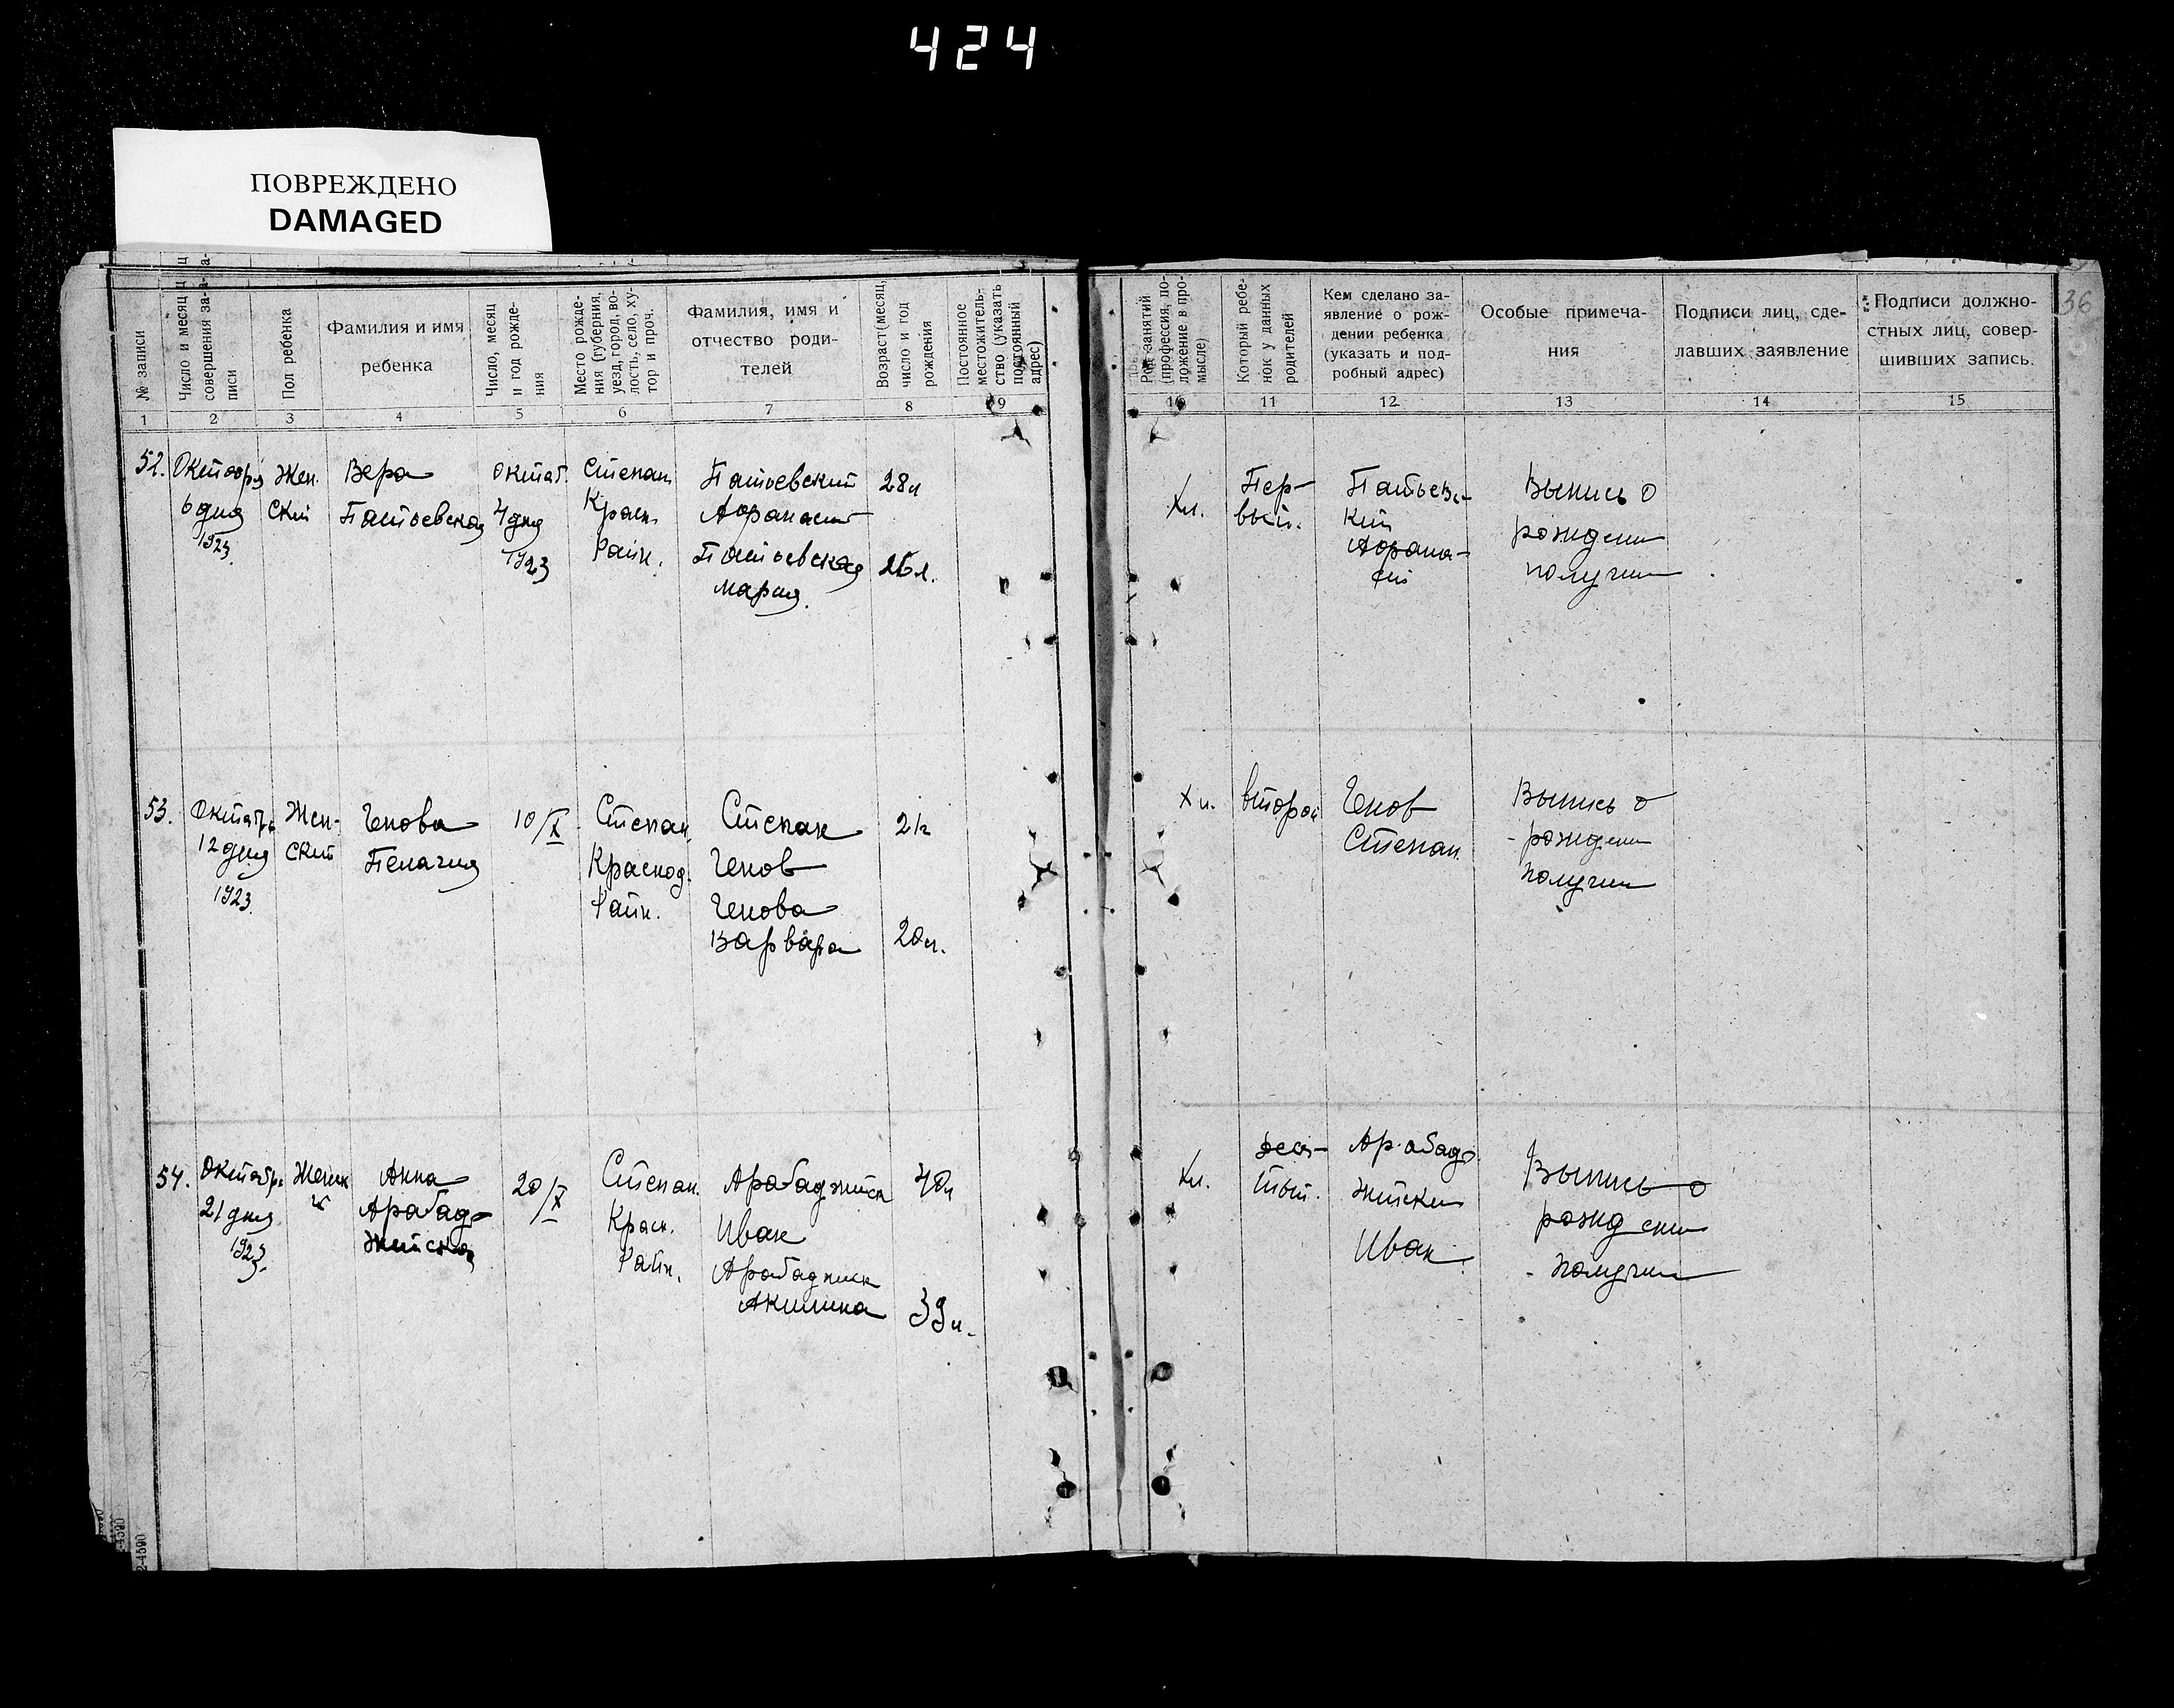 424
ПОВРЕЖДЕНО
DAMAGED
36
№ записи
Число и месяц
совершения за-
писи
Пол ребенка
Фамилия и имя
ребенка
Число, месяц
и год рожде-
ния
Место рожде-
ния (губерния,
уезд, город, во-
лость, село, ху-
тор и проч.
Фамилия, имя и
отчество роди-
телей
Возраст (месяц,
число и год
рождения
Постоянное
местожитель-
ство (указать
постоянный
адрес)
Род занятий
(профессия, по-
ложение в про-
мысле)
Который ребе-
нок у данных
родителей
Кем сделано за-
явление о рож-
дении ребенка
(указать и под-
робный адрес)
Особые примеча-
ния
Подписи лиц, сде-
лавших заявление
Подписи должно-
стных лиц, совер-
шивших запись.
1 2 3 4 5 6 7 8 9 10 11 12 13 14 15
52.
Октября
6 дня
1923.
Жен-
ский
Вера
Патьевская
октяб.
4 дня
1923
Степан.
Красн.
Райн.
Патьевский
Афанасий
Патьевская
Мария.
28л
26л.
Хл.
Пер-
вый.
Патьевс-
кий
Афана-
сий
Выпись о
рождении
получил
53.
Октябр.
12 дня
1923.
Жен-
ский
Генова
Пелагия
10/X
Степан.
Краснод.
Райн.
Степан
Генов
Генова
Варвара
21г
20л.
Хл.
второй
Генов
Степан.
Выпись о
рождении
получил
54.
Октябр.
21 дня
1923.
Женск
й
Анна
Арабад-
жийская
20/X
Степан.
Красн.
Райн.
Арабаджийск
Иван
Арабаджийск
Акилина
40л
39л.
Хл.
деся-
тый.
Арабад-
жийский
Иван.
Выпись о
рождении
получил
2-4590